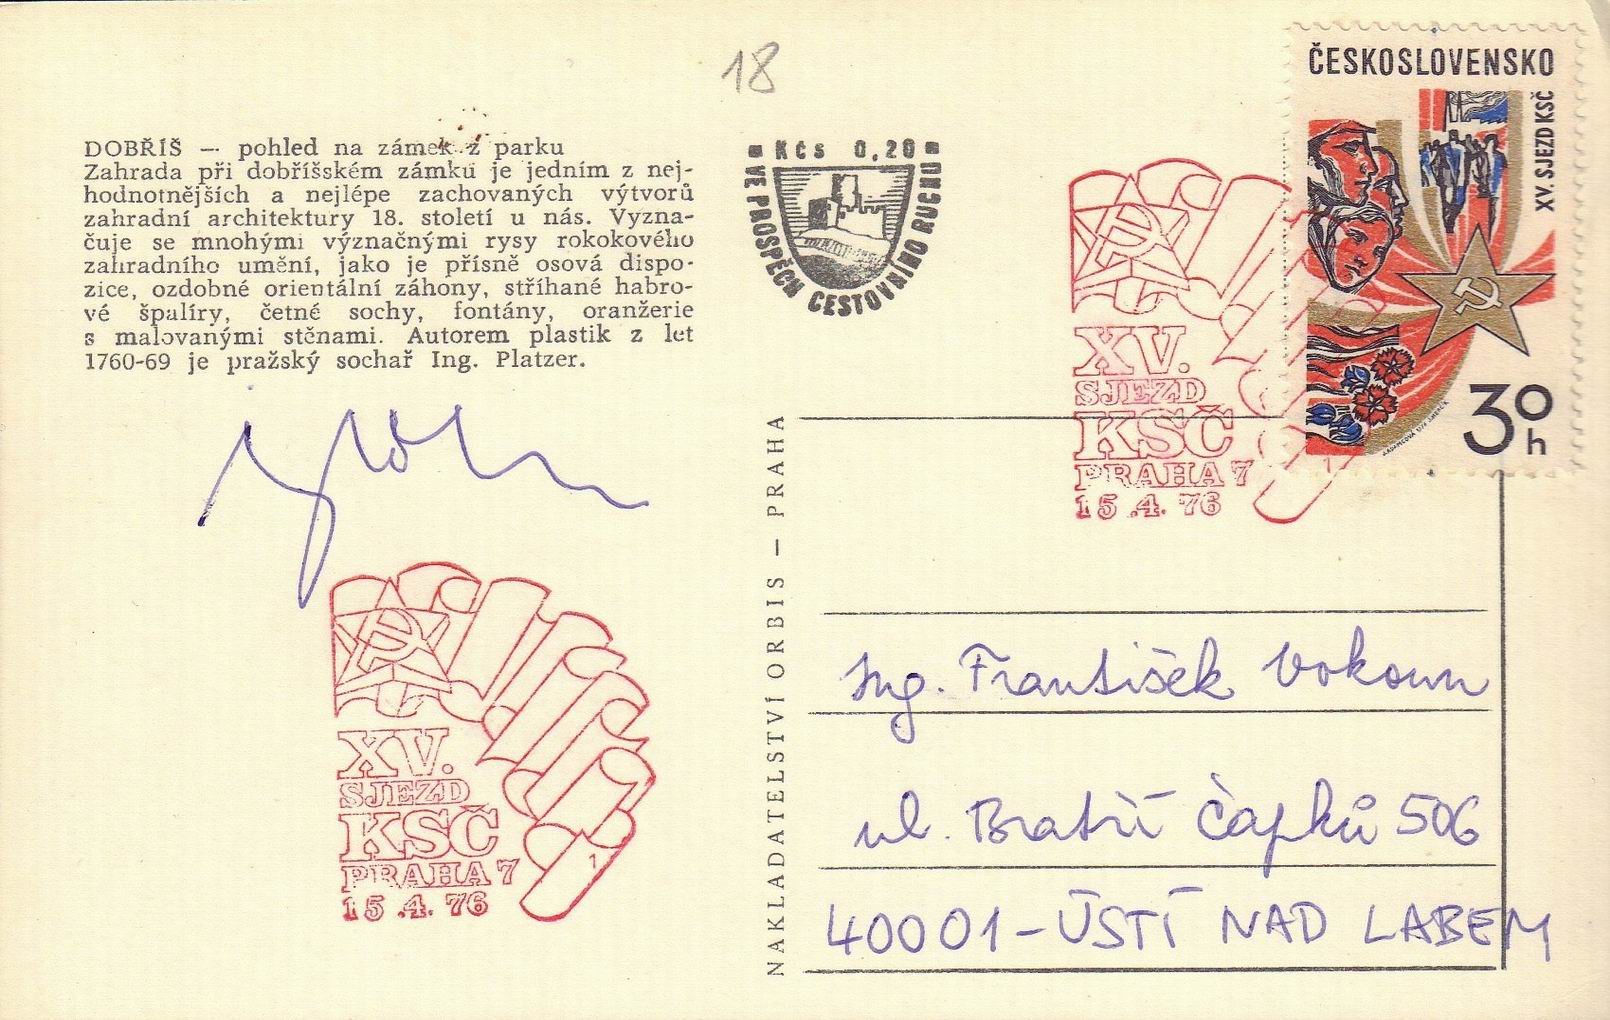 18
DOBŘÍŠ — pohled na zámek z parku
Zahrada při dobříšském zámku je jedním z nej-
hodnotnějších a nejlépe zachovaných výtvorů
zahradní architektury 18. století u nás. Vyzna-
čuje se mnohými význačnými rysy rokokového
zahradního umění, jako je přísně osová dispo-
zice, ozdobné orientální záhony, stříhané habro-
vé špalíry, četné sochy, fontány, oranžerie
s malovanými stěnami. Autorem plastik z let
1760-69 je pražský sochař Ing. Platzer.
XV.
SJEZD
KSČ
PRAHA 7
15.4.76
1
KČS 0,20
VE PROSPĚCH CESTOVNÍHO RUCHU
NAKLADATELSTVÍ ORBIS — PRAHA
XV.
SJEZD
KSČ
PRAHA 7
15.4.76
1
ČESKOSLOVENSKO
XV. SJEZD KSČ
30 h
Ing. František Vokoun
ul. Bratří Čapků 506
40001 - ÚSTÍ NAD LABEM